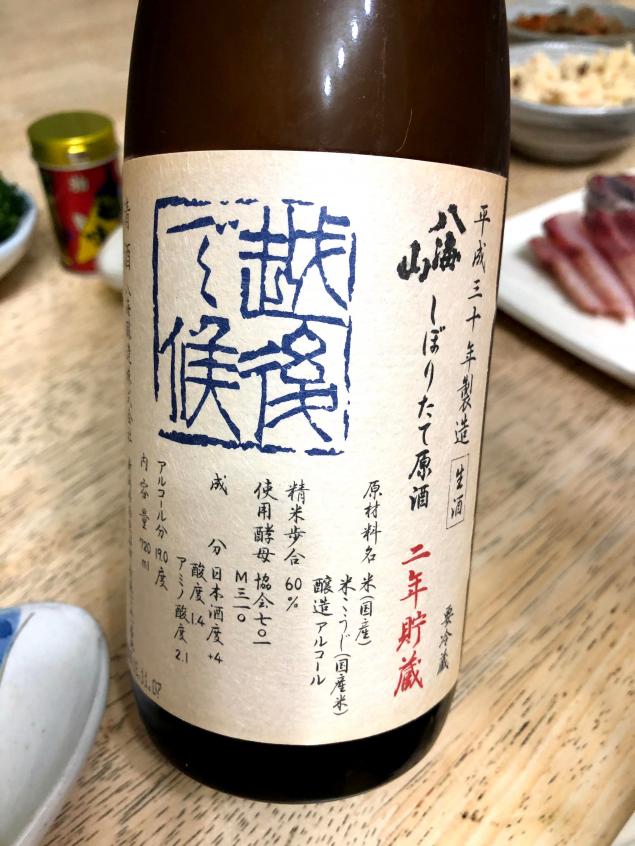 平成三十年製造
生酒
要冷蔵
八海山
しぼりたて原酒
二年貯蔵
越後
で候
原材料名 米(国産)
米こうじ(国産米)
醸造アルコール
精米歩合 60%
使用酵母 協会七〇一
M三一〇
成分 日本酒度 +4
酸度 1.4
アミノ酸度 2.1
アルコール分 19.0度
内容量 720ml
清酒 八海醸造株式会社